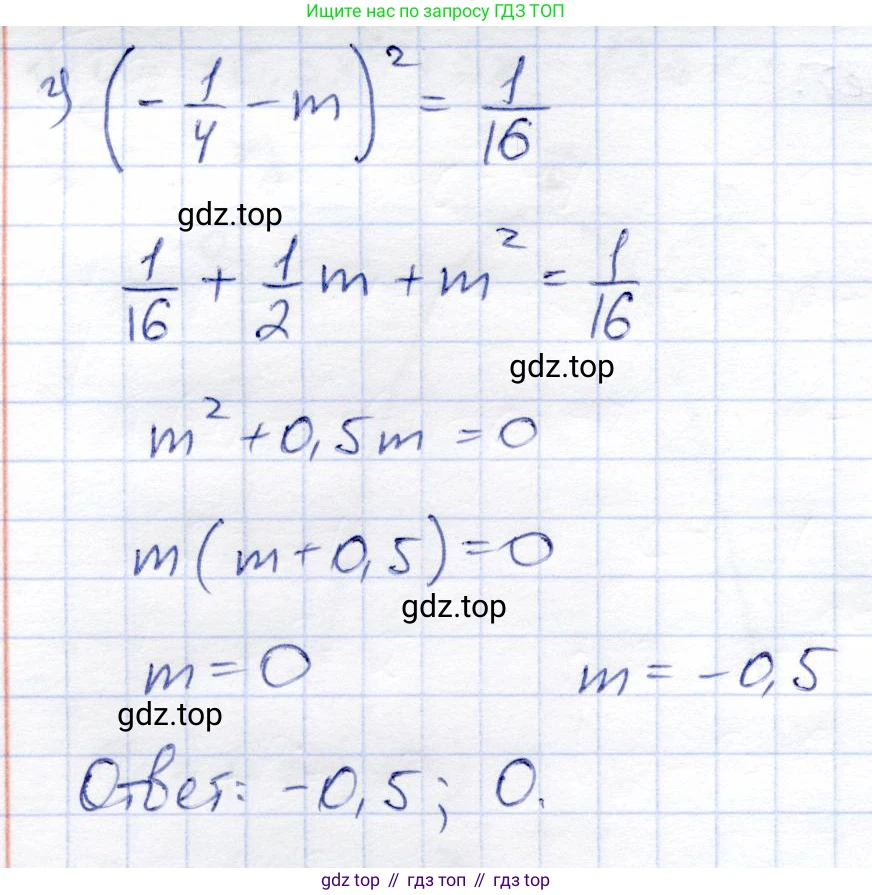 Ищите нас по запросу ГДЗ ТОП
г) (-1/4 - m)² = 1/16
gdz.top
1/16 + 1/2 m + m² = 1/16
gdz.top
m² + 0,5m = 0
m(m + 0,5) = 0
gdz.top
m = 0 m = -0,5
gdz.top
Ответ: -0,5; 0.
gdz top // гдз топ // gdz top